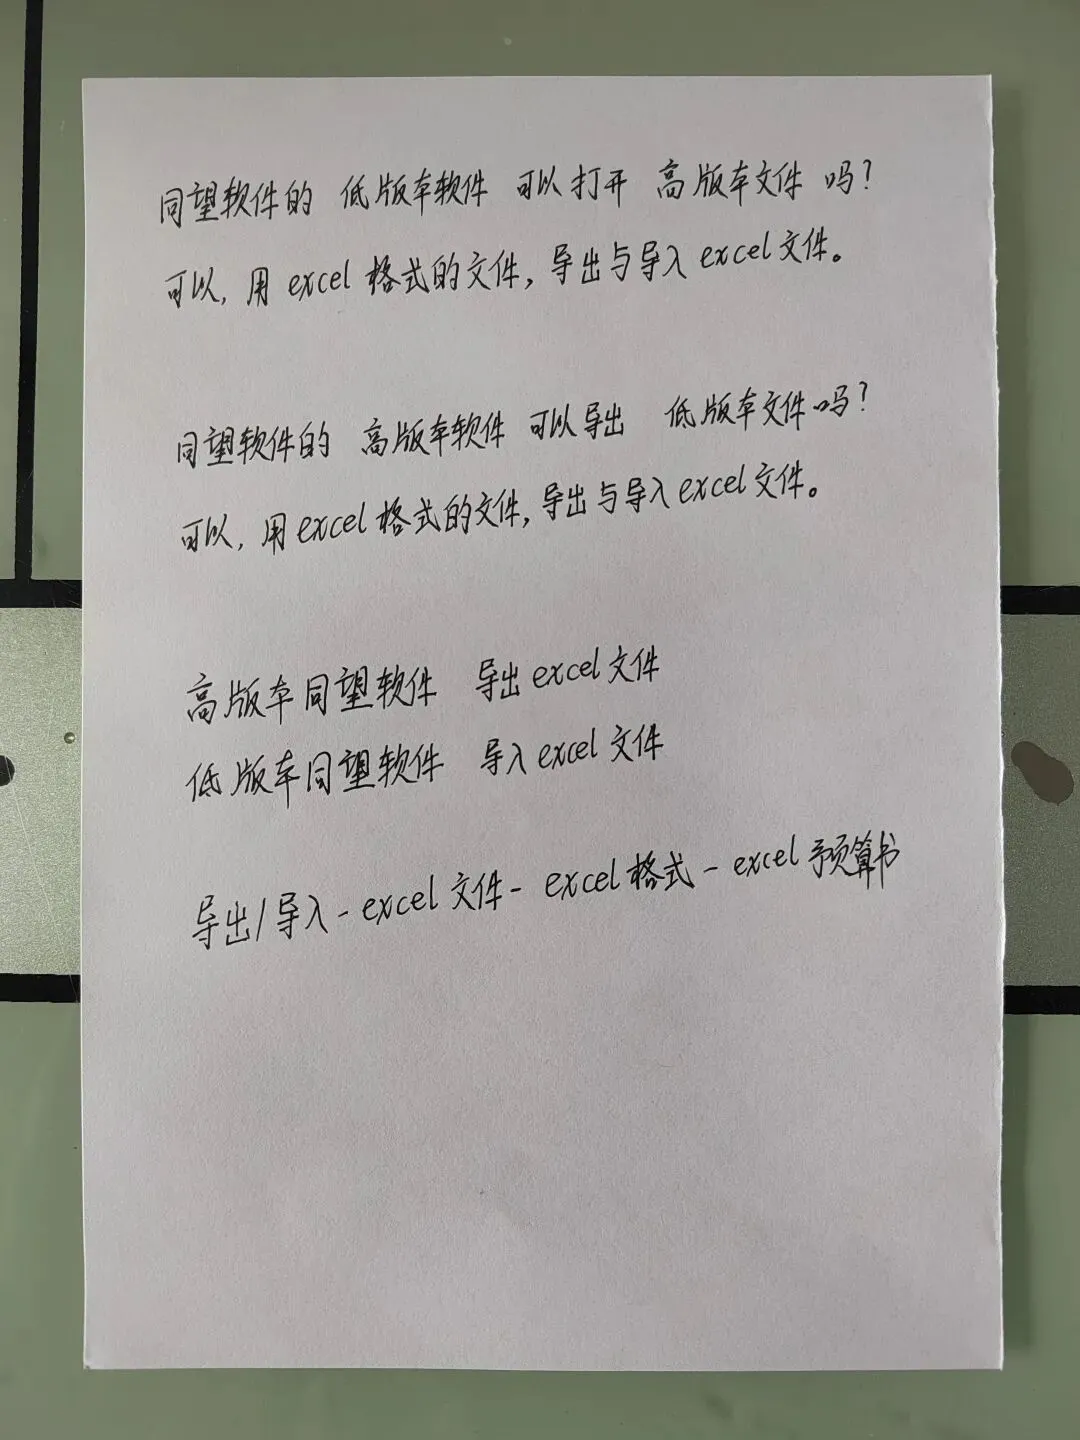 同望软件的 低版本软件 可以打开 高版本文件 吗？
可以，用 excel 格式的文件，导出与导入 excel 文件。
同望软件的 高版本软件 可以导出 低版本文件吗？
可以，用 excel 格式的文件，导出与导入 excel 文件。
高版本同望软件 导出 excel 文件
低版本同望软件 导入 excel 文件
导出/导入-excel 文件-excel格式-excel 预算书